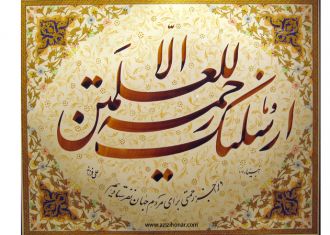 وما ارسلناک الا رحمة للعلمین
و ترا جز رحمتی برای مردم جهان نفرستادیم
www.azizihonar.com